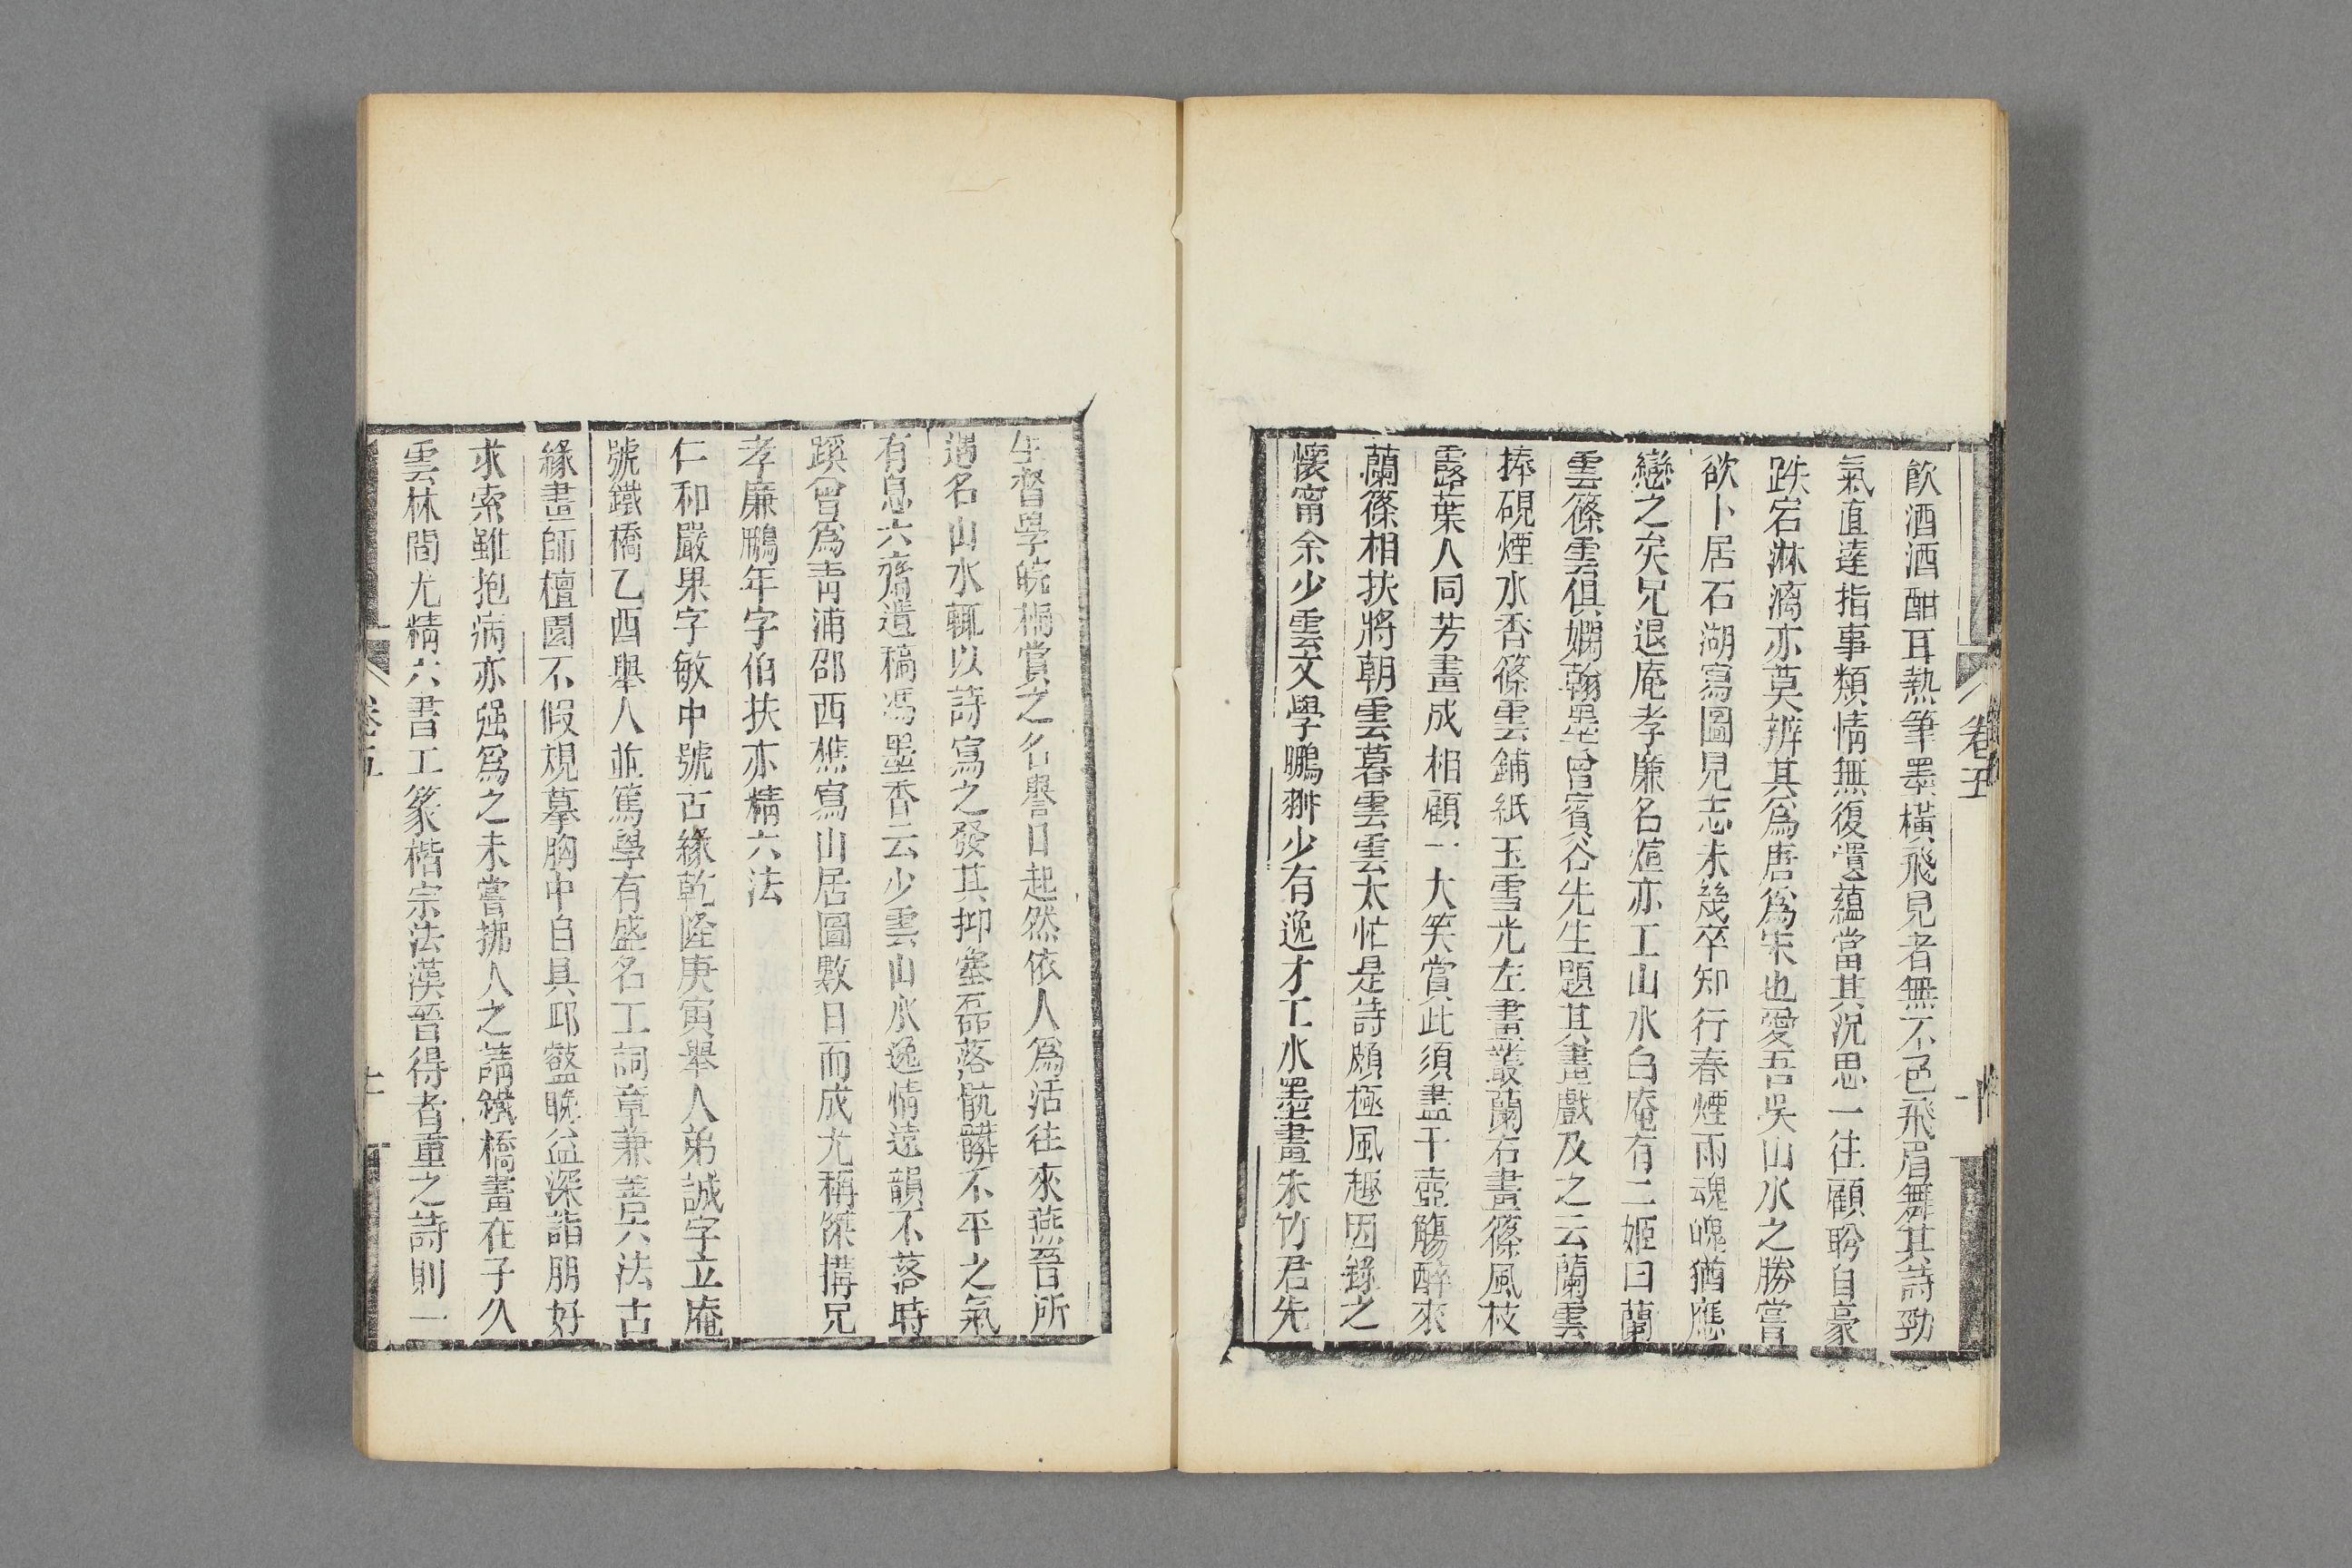 卷五
十
飲酒酒酣耳熱筆墨橫飛見者無不色飛眉舞其詩勁
氣直達指事類情無復遺蘊當其況思一往顧盼自豪
跌宕淋漓亦莫辨其爲唐爲宋也愛吾吳山水之勝嘗
欲卜居石湖寫圖見志未幾卒知行春煙雨魂魄猶應
戀之矣兄退庵孝廉名煊亦工山水白庵有二姬曰蘭
雲篠雲俱嫻翰墨曾賓谷先生題其畫戲及之云蘭雲
捧硯煙水香篠雲鋪紙玉雪光左畫叢蘭右畫篠風枝
露葉人同芳畫成相顧一大笑賞此須盡千壺觴醉來
蘭篠相扶將朝雲暮雲雲太忙是詩頗極風趣因錄之
懷甯余少雲文學鵬翀少有逸才工水墨畫朱竹君先
生督學皖桐賞之名譽日起然依人爲活往來燕晉所
遇名山水輒以詩寫之發其抑塞磊落骯髒不平之氣
有息六齋遺稿馮墨香云少雲山水逸情遠韻不落時
蹊曾爲青浦邵西樵寫山居圖數日而成尤稱傑搆兄
孝廉鵬年字伯扶亦精六法
仁和嚴果字敏中號古緣乾隆庚寅舉人弟誠字立庵
號鐵橋乙酉舉人並篤學有盛名工詞章兼善六法古
緣畫師檀園不假規摹胸中自具邱壑晚益深詣朋好
求索雖抱病亦强爲之未嘗拂人之請鐵橋畫在子久
雲林間尤精六書工篆楷宗法漢晉得者重之詩則一
卷五